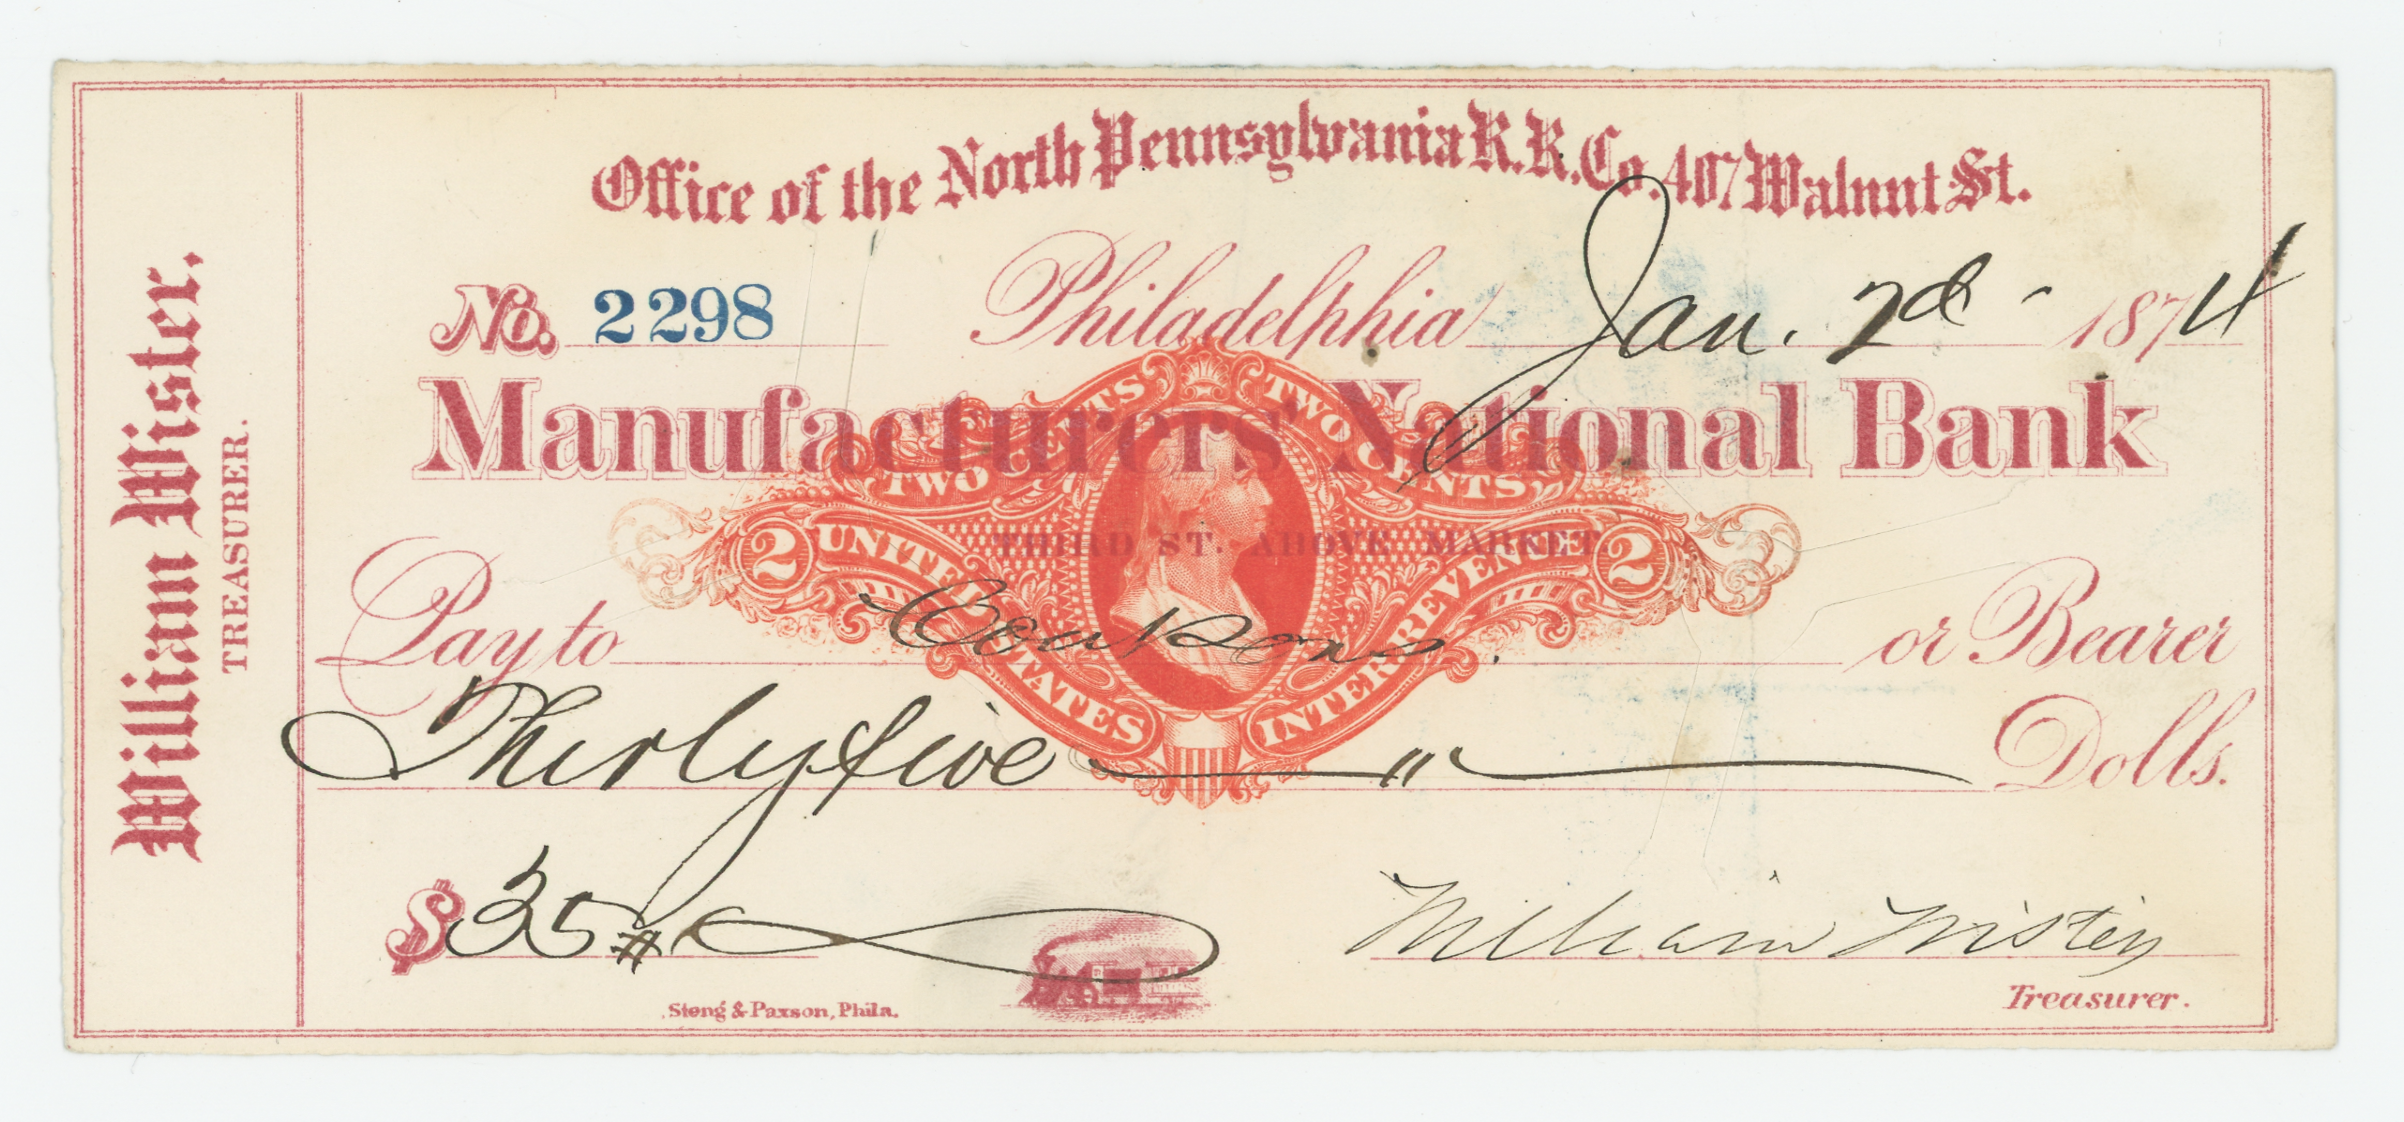 Office of the North Pennsylvania R.R.Co. 407 Walnut St.
No. 2298 Philadelphia Jan. 2d - 1874
Manufacturers' National Bank
TWO CENTS TWO CENTS
THIRD ST. ABOVE MARKET.
2 UNITED STATES INTER. REVENUE 2
Pay to Coupons. or Bearer
Thirty five Dolls.
$35
William Wister
Treasurer.
Steng & Paxson, Phila.
William Wister.
TREASURER.